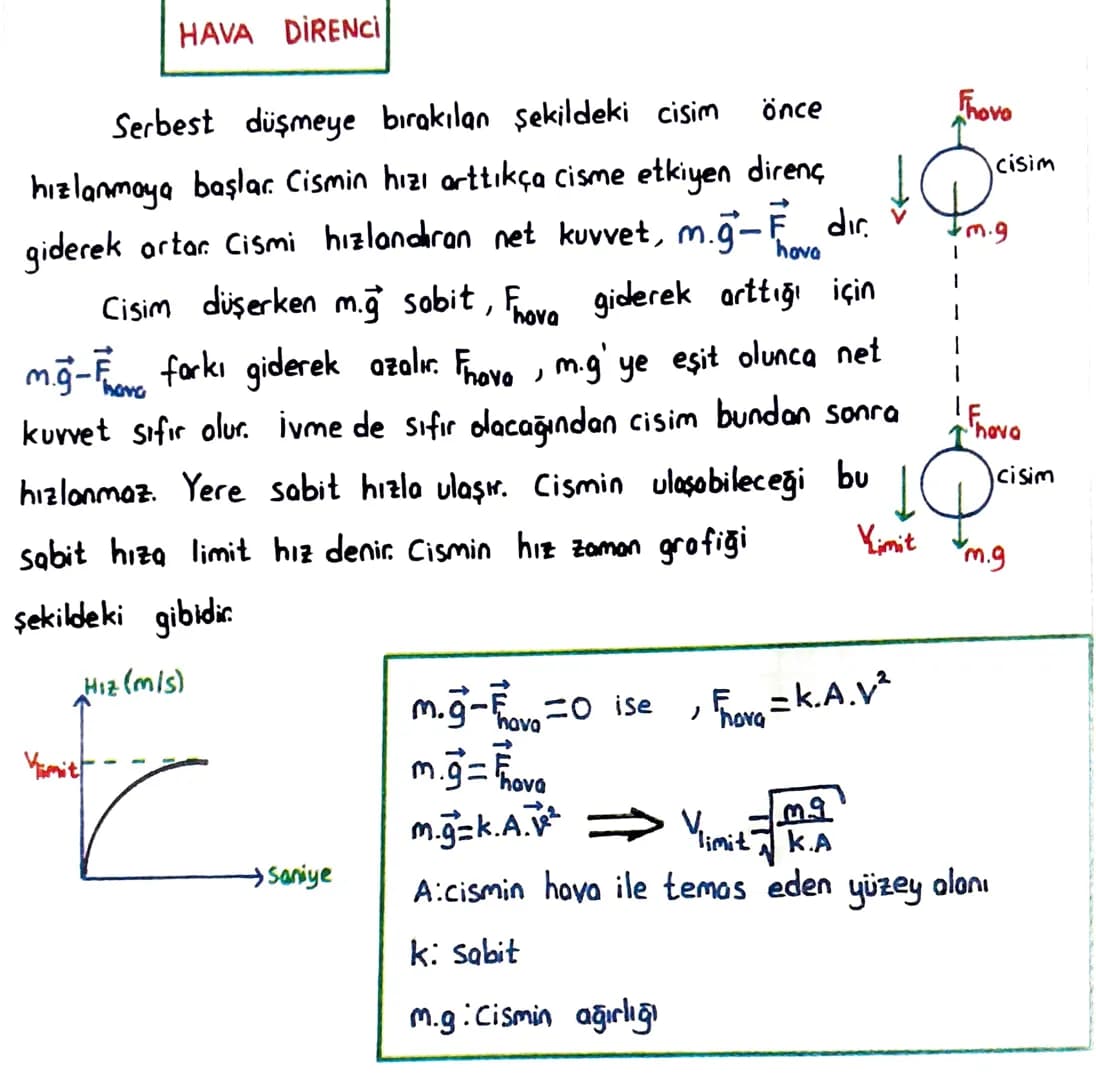 HAVA DİRENCİ
Serbest düşmeye bırakılan şekildeki cisim önce
hızlanmaya başlar. Cismin hızı arttıkça cisme etkiyen direnç
giderek artar. Cismi hızlandıran net kuvvet, m.g⃗ − F⃗hava dır.
Cisim düşerken m.g⃗ sabit, Fhava giderek arttığı için
m.g⃗ − F⃗hava farkı giderek azalır. Fhava, m.g' ye eşit olunca net
kuvvet sıfır olur. İvme de sıfır olacağından cisim bundan sonra
hızlanmaz. Yere sabit hızla ulaşır. Cismin ulaşabileceği bu
sabit hıza limit hız denir. Cismin hız zaman grafiği
şekildeki gibidir.
Fhava
cisim
V
m.g
Fhava
cisim
Vlimit
m.g
Hız (m/s)
Vlimit
Saniye
m.g⃗ − F⃗hava = 0 ise , Fhava = k.A.V²
m.g⃗ = F⃗hava
m.g⃗ = k.A.V⃗² ⟹ Vlimit = √(m.g / k.A)
A: cismin hava ile temas eden yüzey alanı
k: sabit
m.g: Cismin ağırlığı